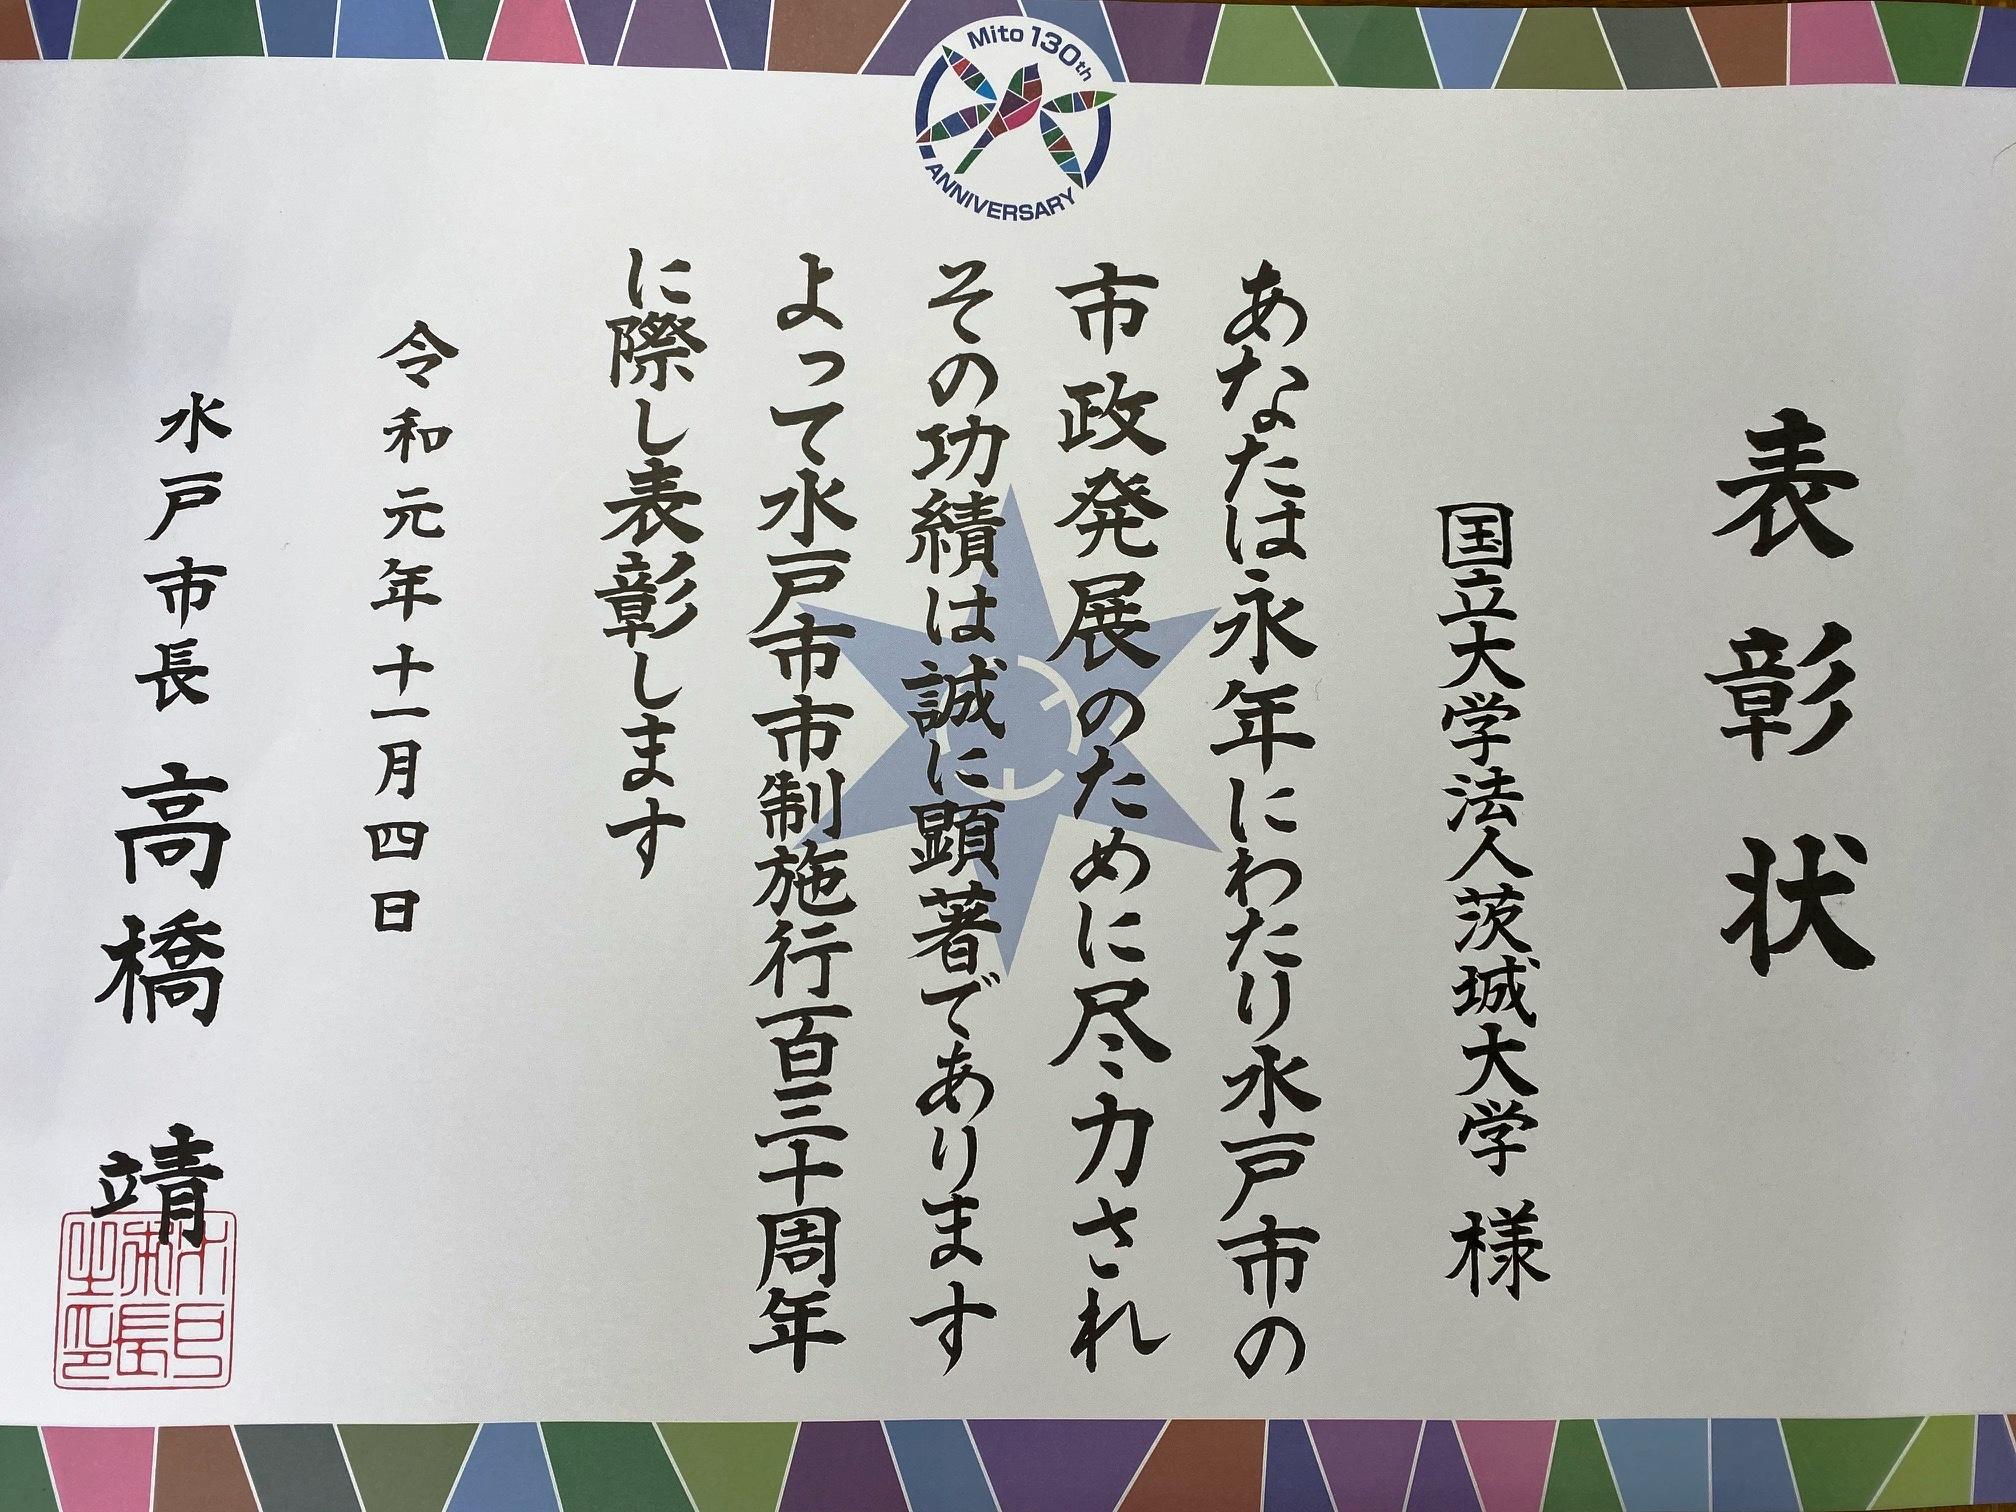 Mito 130th
ANNIVERSARY
表彰状
国立大学法人茨城大学 様
あなたは永年にわたり水戸市の
市政発展のために尽力され
その功績は誠に顕著であります
よって水戸市市制施行百三十周年
に際し表彰します
令和元年十一月四日
水戸市長 高橋 靖
水戸市長之印